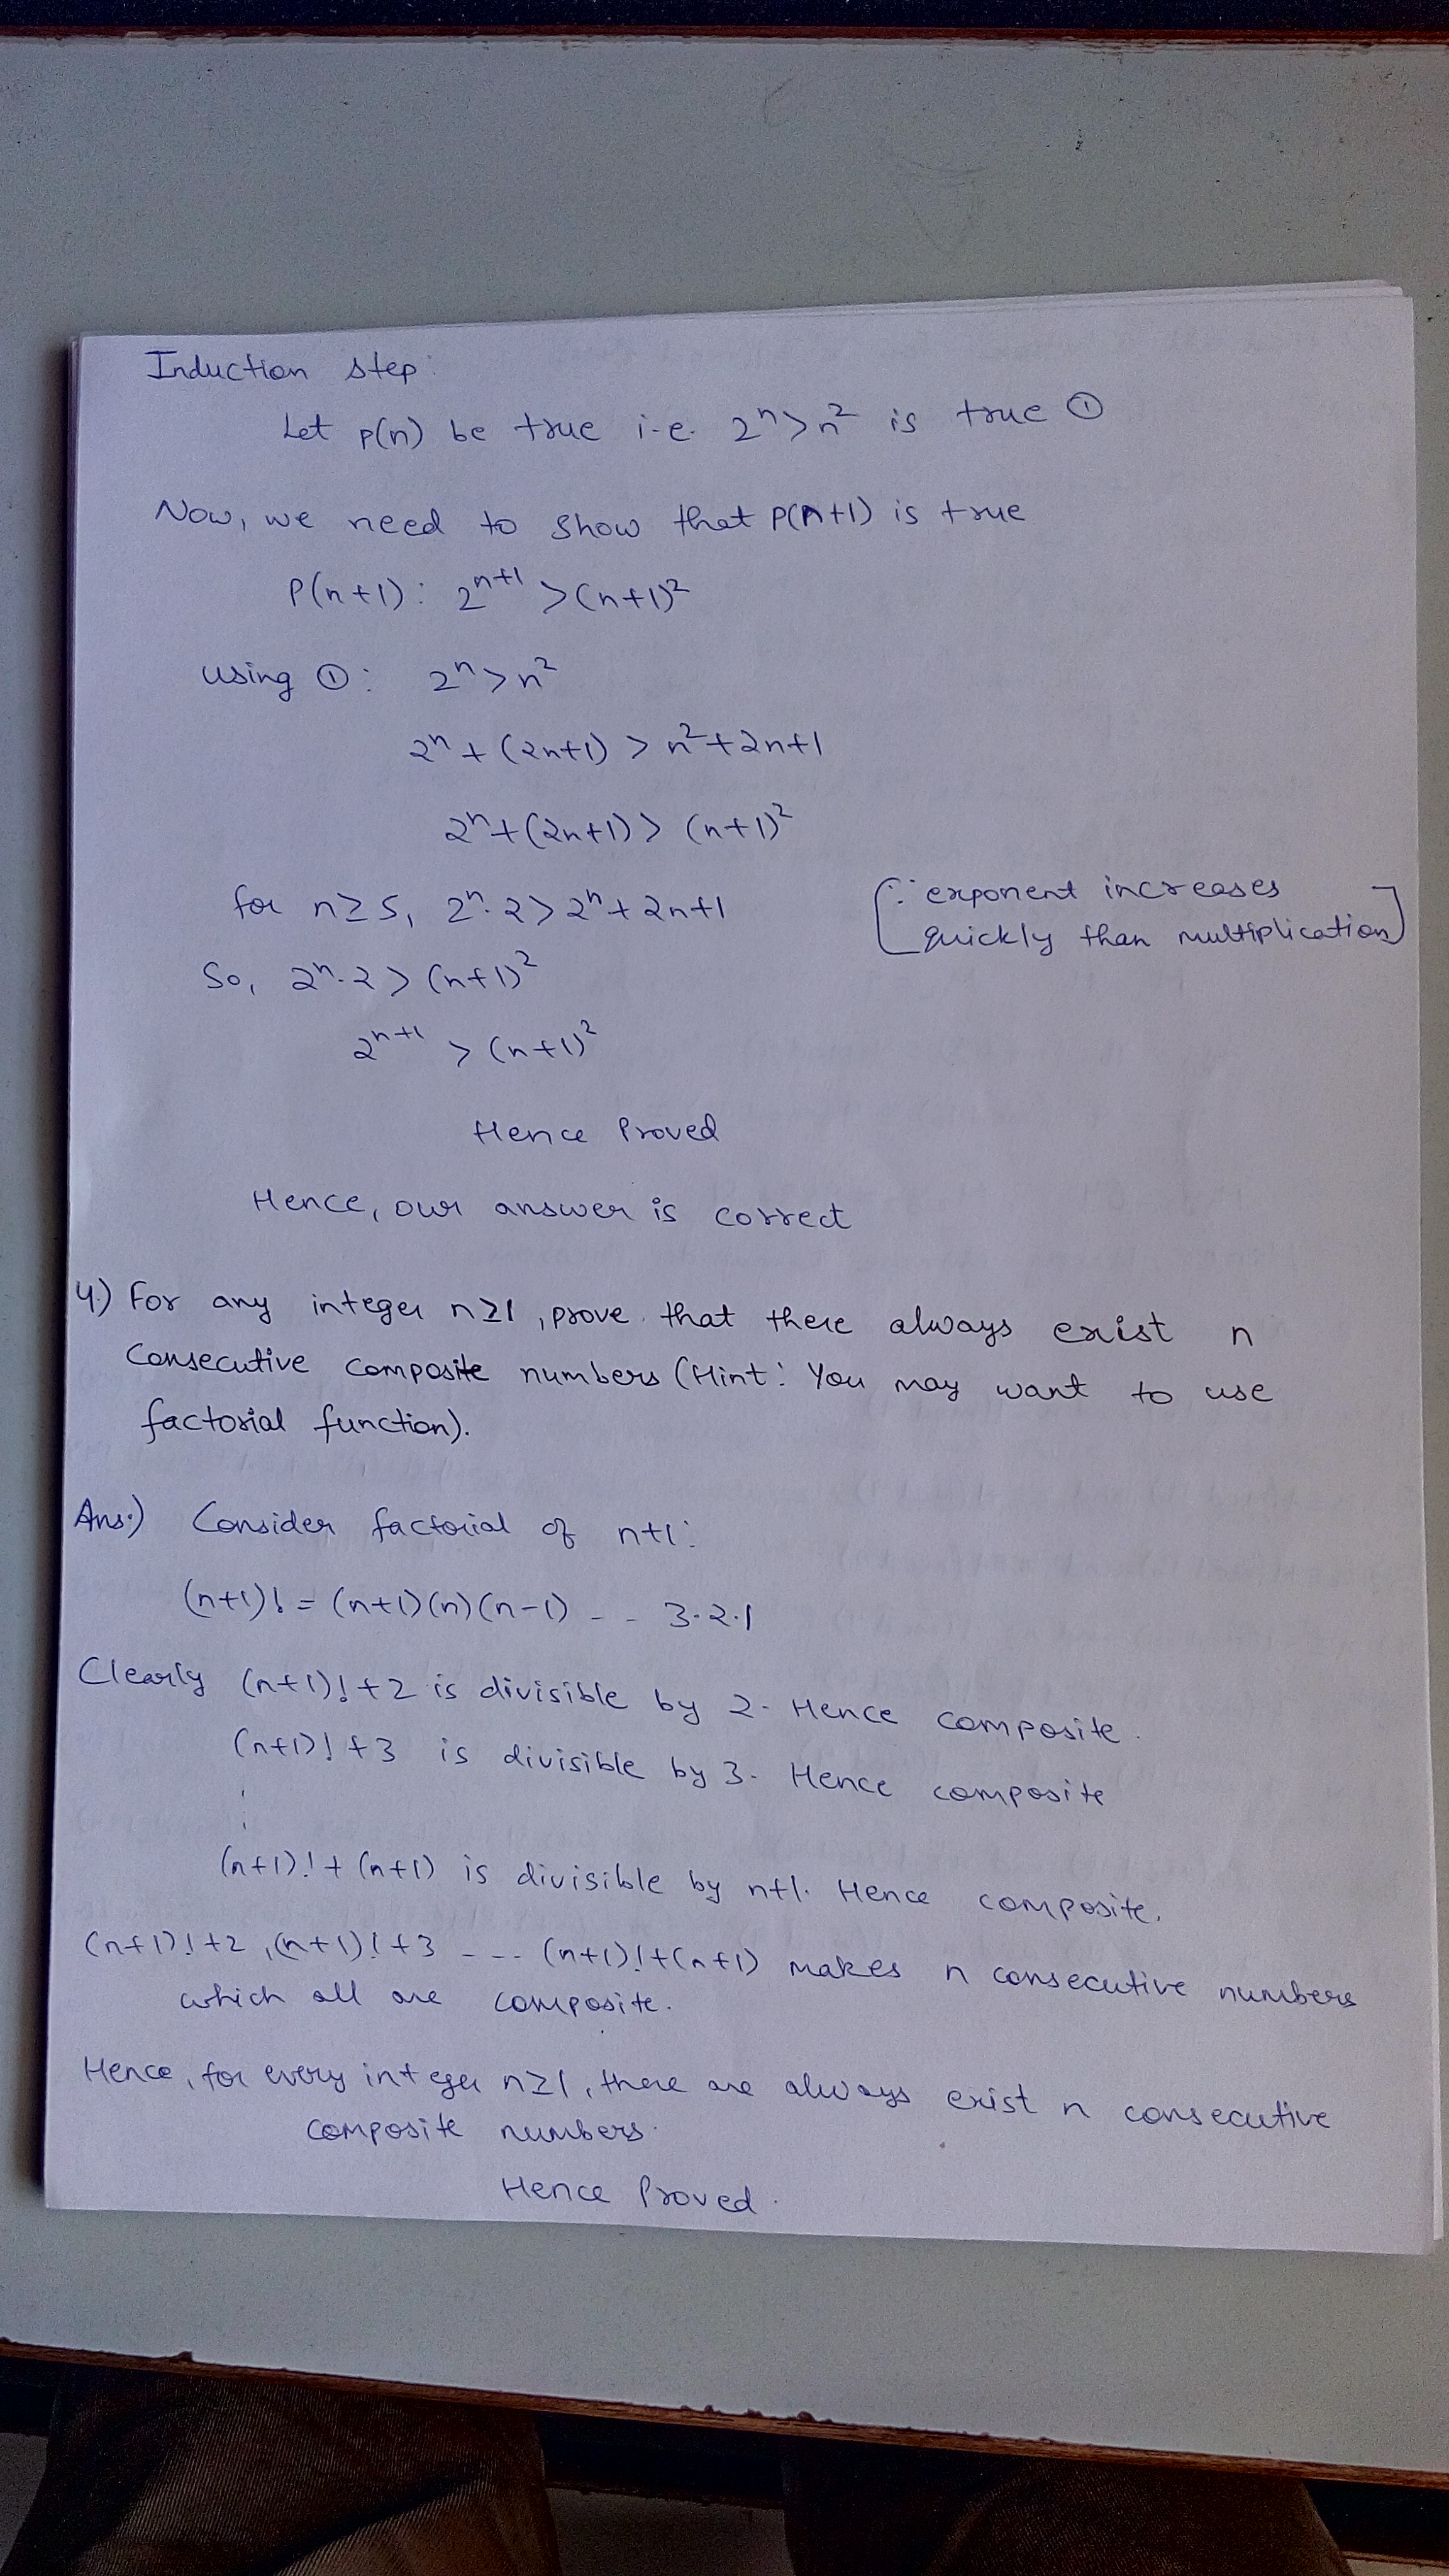 Induction step:
Let p(n) be true i.e. 2ⁿ>n² is true ①
Now, we need to show that P(n+1) is true
P(n+1): 2ⁿ⁺¹ >(n+1)²
using ①: 2ⁿ>n²
2ⁿ + (2n+1) > n²+2n+1
2ⁿ+(2n+1)> (n+1)²
for n≥5, 2ⁿ.2>2ⁿ+2n+1 [∵ exponent increases
quickly than multiplication]
So, 2ⁿ.2> (n+1)²
2ⁿ⁺¹ > (n+1)²
Hence Proved
Hence, our answer is correct
4.) For any integer n≥1, prove that there always exist n
Consecutive composite numbers (Hint: You may want to use
factorial function).
Ans:) Consider factorial of n+1:
(n+1)! = (n+1)(n)(n-1) - - 3.2.1
Clearly (n+1)!+2 is divisible by 2. Hence composite.
(n+1)!+3 is divisible by 3. Hence composite
(n+1)!+(n+1) is divisible by n+1. Hence composite.
(n+1)!+2, (n+1)!+3 --- (n+1)!+(n+1) makes n consecutive numbers
which all are composite.
Hence, for every integer n≥1, there are always exist n consecutive
composite numbers.
Hence Proved.